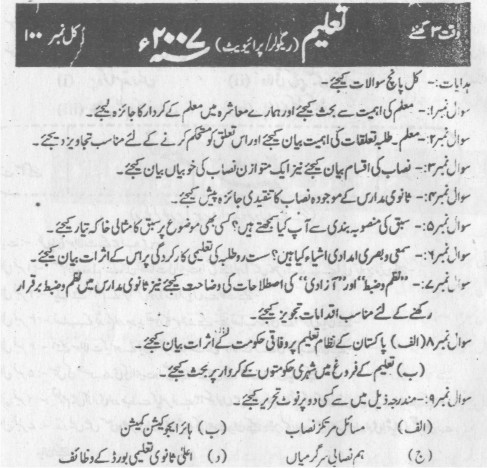 وقت ۳ گھنٹے تعلیم (ریگولر/پرائیویٹ) سنہ ۲۰۰۷ء کل نمبر ۱۰۰
ہدایات:- کل پانچ سوالات کیجئے۔
سوال نمبر۱:- معلم کی اہمیت سے بحث کیجئے اور ہمارے معاشرہ میں معلم کے کردار کا جائزہ لیجئے۔
سوال نمبر۲:- معلم۔طلبہ تعلقات کی اہمیت بیان کیجئے اور اس تعلق کو مستحکم کرنے کے لئے مناسب تجاویز دیجئے۔
سوال نمبر۳:- نصاب کی اقسام بیان کیجئے نیز ایک متوازن نصاب کی خوبیاں بیان کیجئے۔
سوال نمبر۴:- ثانوی مدارس کے موجودہ نصاب کا تنقیدی جائزہ پیش کیجئے۔
سوال نمبر۵:- سبق کی منصوبہ بندی سے آپ کیا سمجھتے ہیں؟ کسی بھی موضوع پر سبق کا مثالی خاکہ تیار کیجئے۔
سوال نمبر۶:- سمعی و بصری امدادی اشیاء کیا ہیں؟ ست رو طلبہ کی تعلیمی کارکردگی پر اس کے اثرات بیان کیجئے۔
سوال نمبر۷:- "نظم و ضبط" اور "آزادی" کی اصطلاحات کی وضاحت کیجئے نیز ثانوی مدارس میں نظم و ضبط برقرار
رکھنے کے لئے مناسب اقدامات تجویز کیجئے۔
سوال نمبر۸ (الف) پاکستان کے نظام تعلیم پر وفاقی حکومت کے اثرات بیان کیجئے۔
(ب) تعلیم کے فروغ میں شہری حکومتوں کے کردار پر بحث کیجئے۔
سوال نمبر۹:- مندرجہ ذیل میں سے کسی دو پر نوٹ تحریر کیجئے۔
(الف) مسائل مرتکز نصاب (ب) ہائر ایجوکیشن کمیشن
(ج) ہم نصابی سرگرمیاں (د) اعلیٰ ثانوی تعلیمی بورڈ کے وظائف